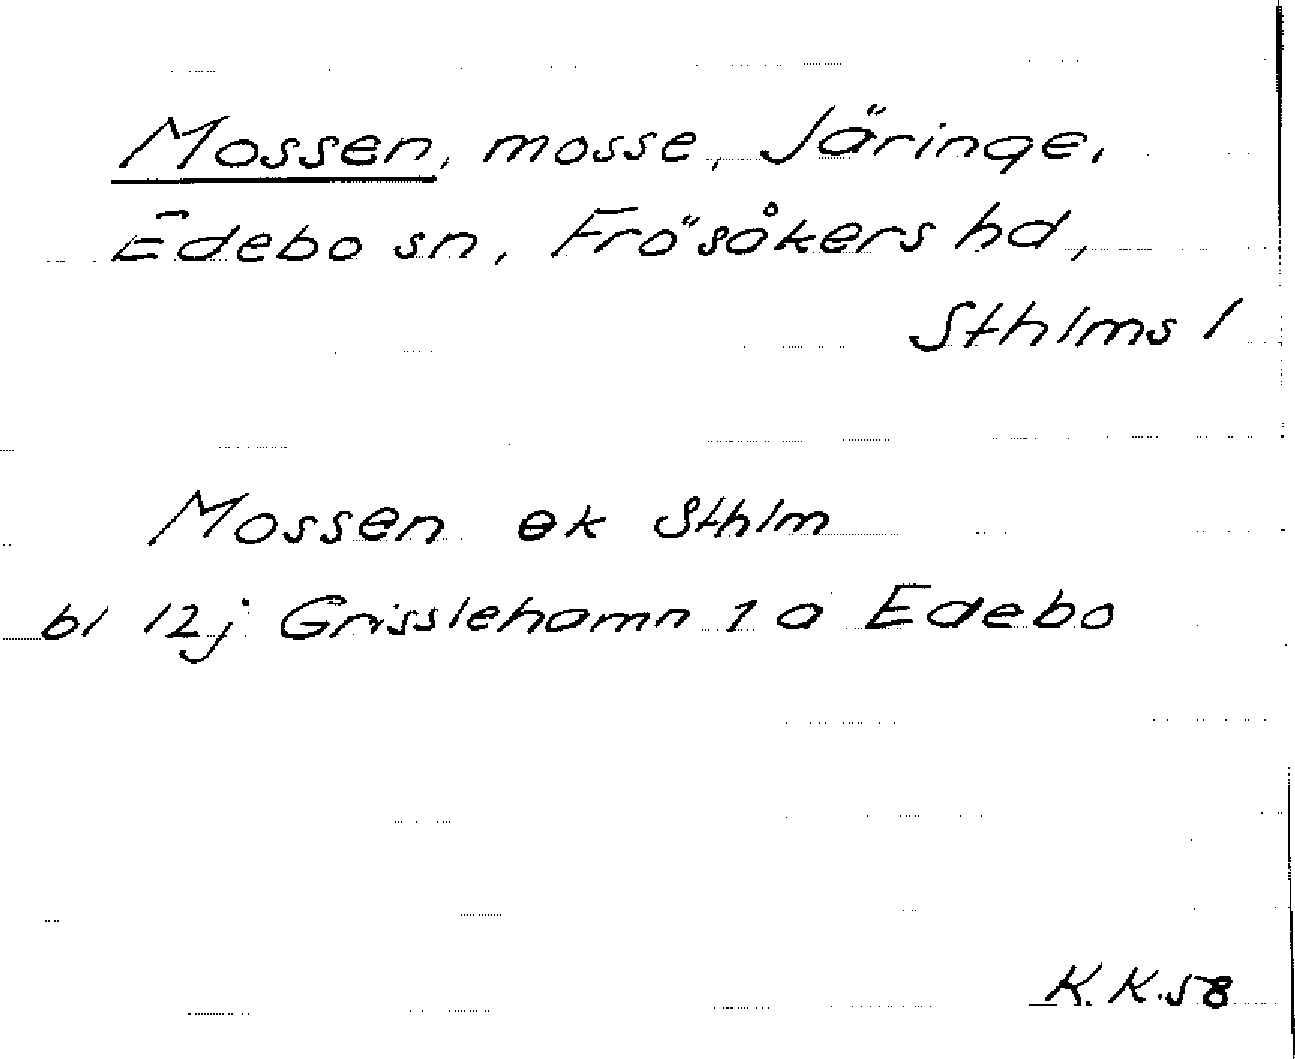 Mossen, mosse, Järinge,
Edebo sn, Frösåkers hd,
Sthlms l
Mossen ek Sthlm
bl 12j Grisslehamn 1 a Edebo
K.K.58